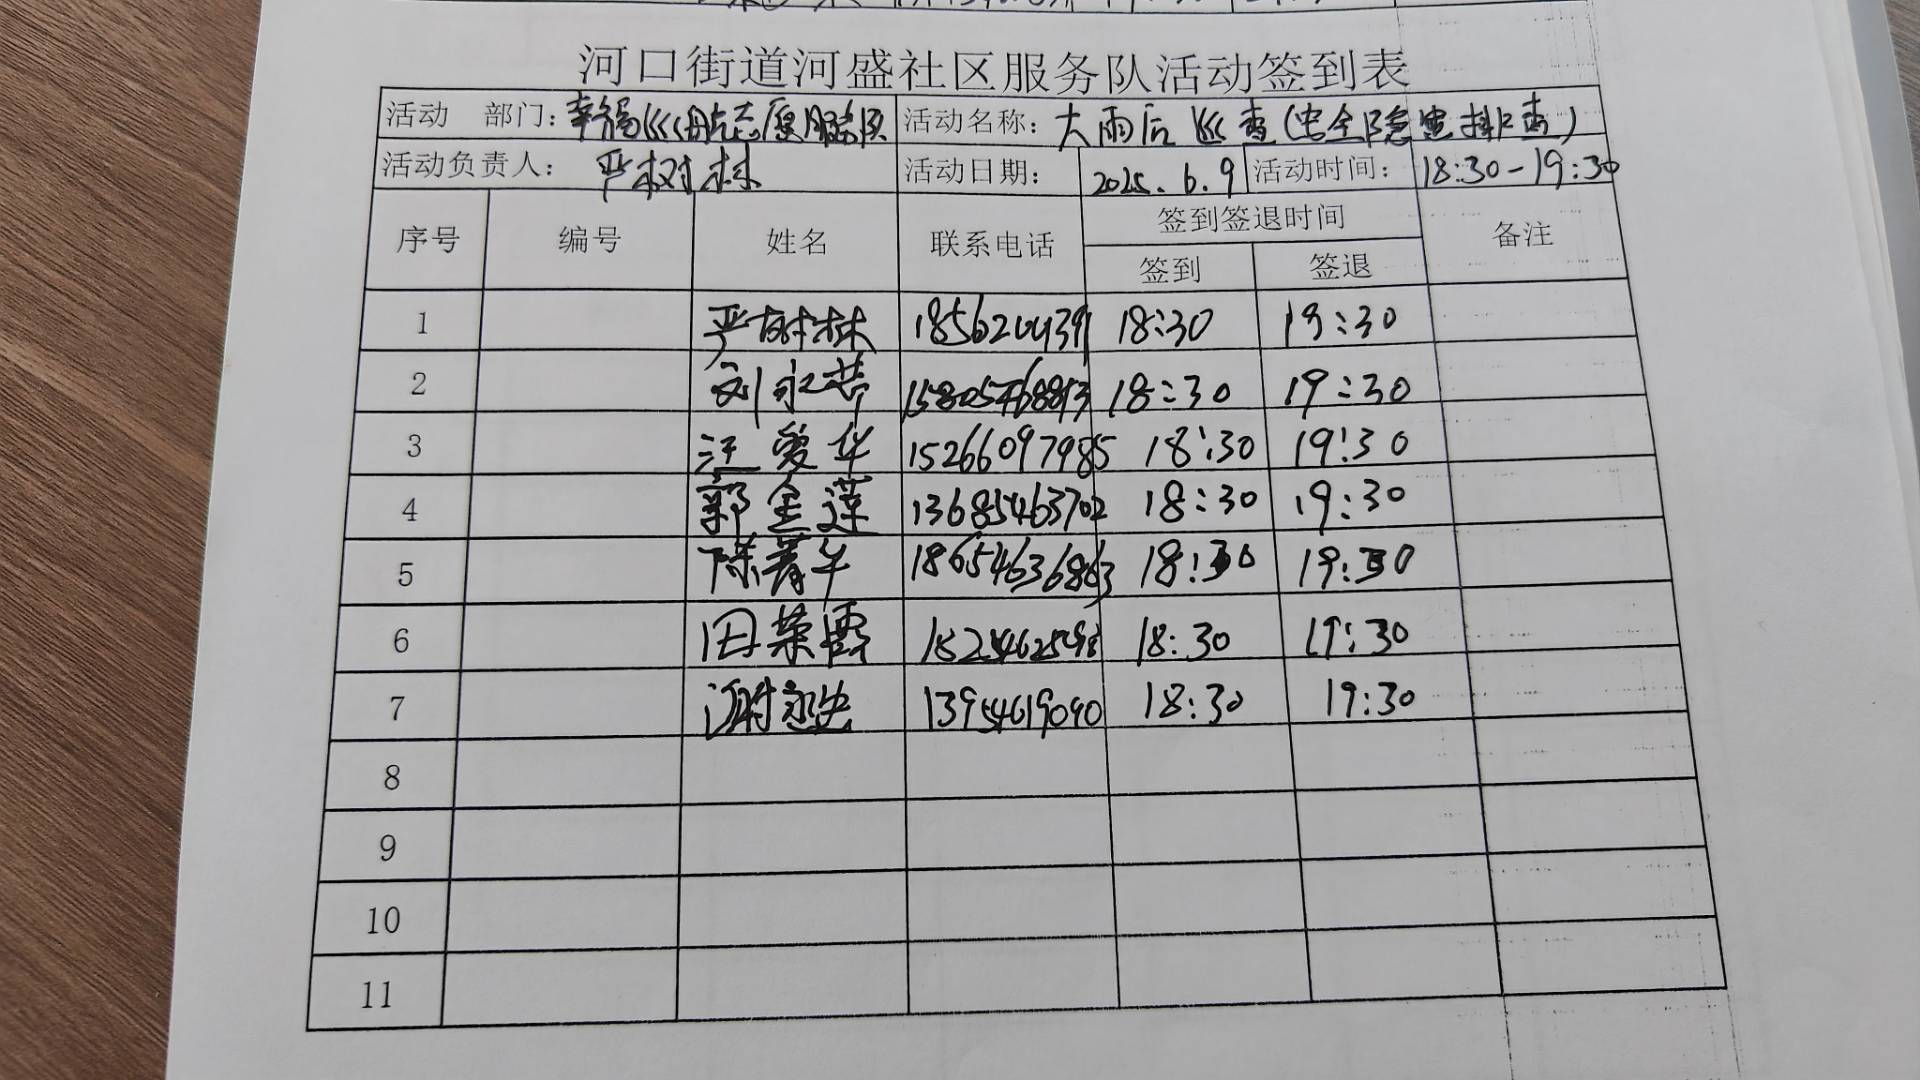 河口街道河盛社区服务队活动签到表
活动 部门：幸福巡航志愿服务队 活动名称：大雨后巡查(安全隐患排查)
活动负责人：严树林 活动日期：2025.6.9 活动时间：18:30-19:30
序号 编号 姓名 联系电话 签到签退时间 备注
签到 签退
1 严树林 18:30 19:30
2 刘永芹 15805468813 18:30 19:30
3 汪爱华 15266097985 18:30 19:30
4 郭金莲 13685463702 18:30 19:30
5 陈菁华 18654636863 18:30 19:30
6 田荣霞 18:30 19:30
7 13954619090 18:30 19:30
8
9
10
11